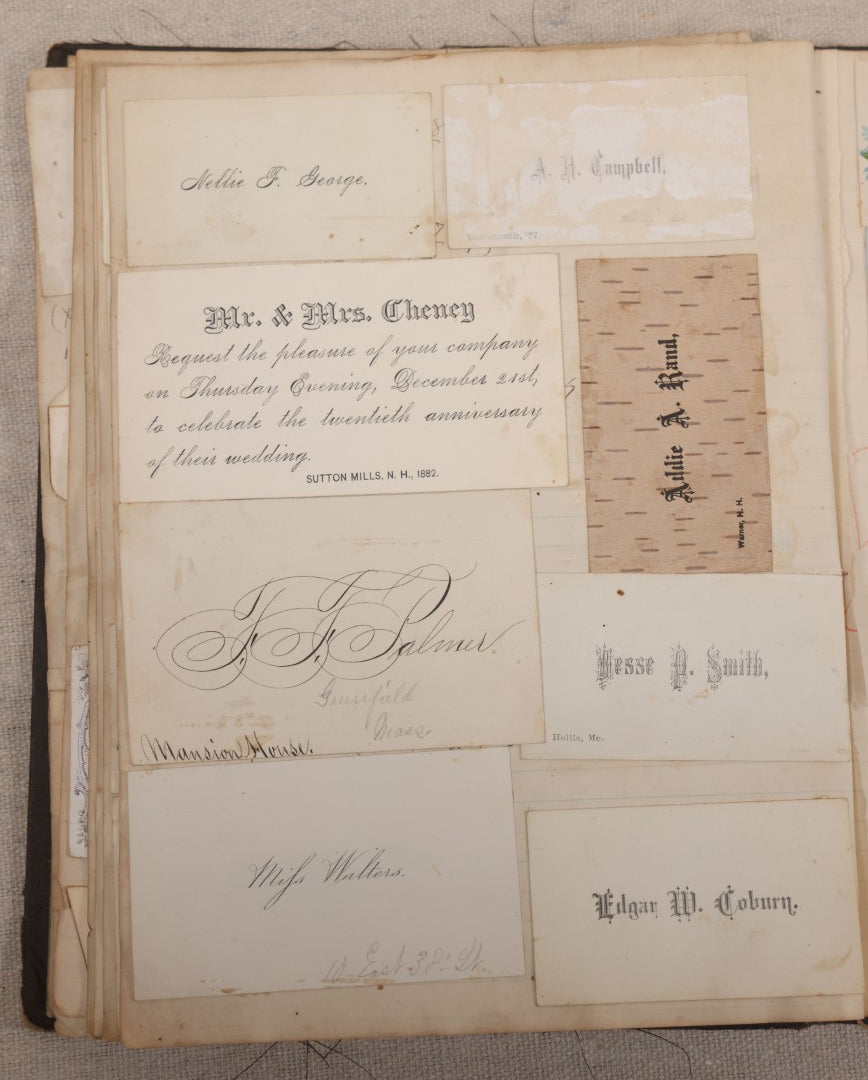 Nellie F. George.
A. H. Campbell.
Dartmouth, '77.
Mr. & Mrs. Cheney
Request the pleasure of your company
on Thursday Evening, December 21st,
to celebrate the twentieth anniversary
of their wedding.
SUTTON MILLS, N. H., 1882.
Addie A. Rand,
Warner, N. H.
F. F. Palmer.
Greenfield
Mass.
Mansion House.
Jesse D. Smith,
Hollis, Me.
Miſs Walters.
10 East 38th St.
Edgar W. Coburn.